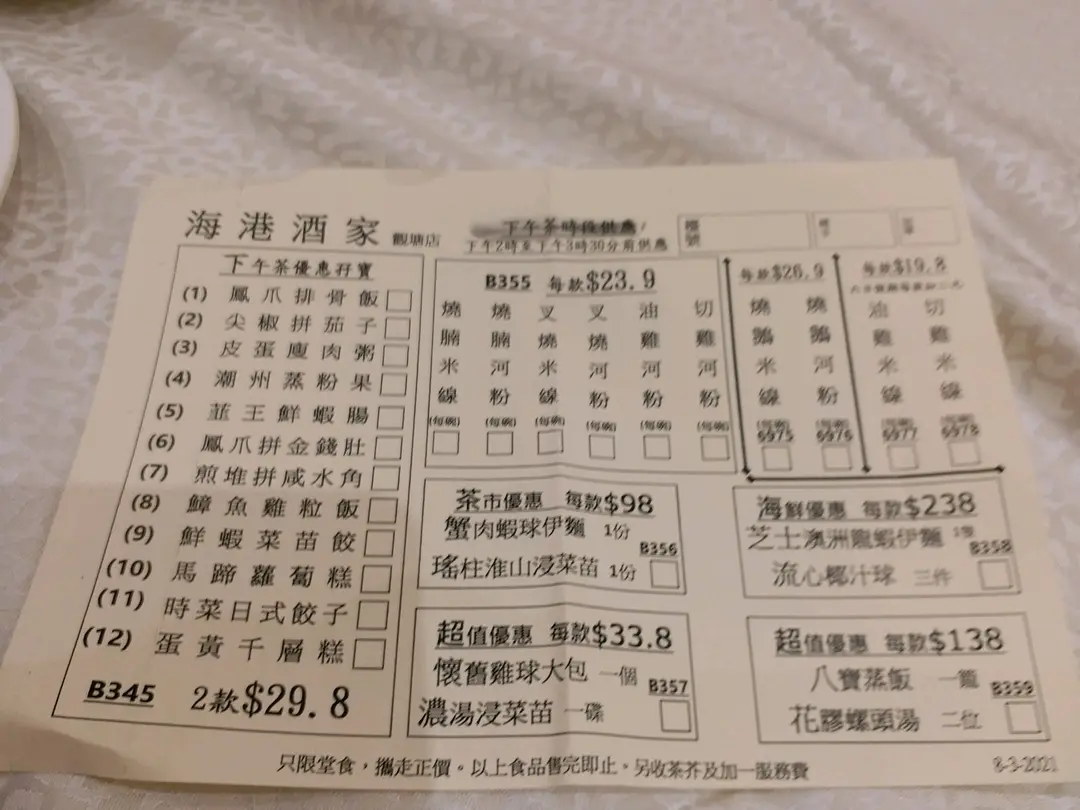 海港酒家 觀塘店
下午茶時段供應
下午2時至下午3時30分前供應
下午茶優惠孖寶
(1) 鳳爪排骨飯
(2) 尖椒拼茄子
(3) 皮蛋廋肉粥
(4) 潮州蒸粉果
(5) 韮王鮮蝦腸
(6) 鳳爪拼金錢肚
(7) 煎堆拼咸水角
(8) 鱆魚雞粒飯
(9) 鮮蝦菜苗餃
(10) 馬蹄蘿蔔糕
(11) 時菜日式餃子
(12) 蛋黃千層糕
B345 2款$29.8
B355 每款$23.9
燒腩米線 (每碗)
燒腩河粉 (每碗)
叉燒米線 (每碗)
叉燒河粉 (每碗)
油雞河粉 (每碗)
切雞河粉 (每碗)
每款$26.9
燒鵝米線 6975
燒鵝河粉 6976
每款$19.8
油雞米線 6977
切雞米線 6978
茶市優惠 每款$98
蟹肉蝦球伊麵 1份
瑤柱淮山浸菜苗 1份
B356
海鮮優惠 每款$238
芝士澳洲龍蝦伊麵
流心椰汁球 三件
B358
超值優惠 每款$33.8
懷舊雞球大包 一個
濃湯浸菜苗 一碟
B357
超值優惠 每款$138
八寶蒸飯 一籠
花膠螺頭湯 二位
B359
只限堂食，攜走正價。以上食品售完即止。另收茶芥及加一服務費
8-3-2021